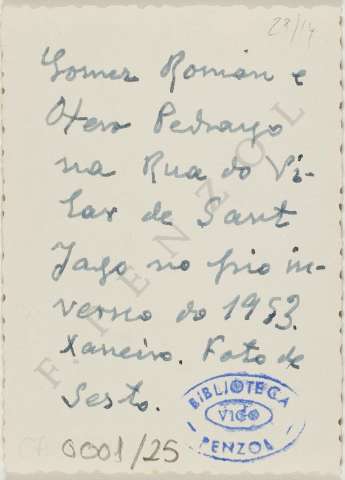 23/14
Gomez Román e
Otero Pedrayo
na Rua do Vi-
lar de Sant
Jago no frio in-
verno do 1953.
Xaneiro. Foto de
Sesto.
0001/25
BIBLIOTECA
VIGO
PENZOL
F. PENZOL